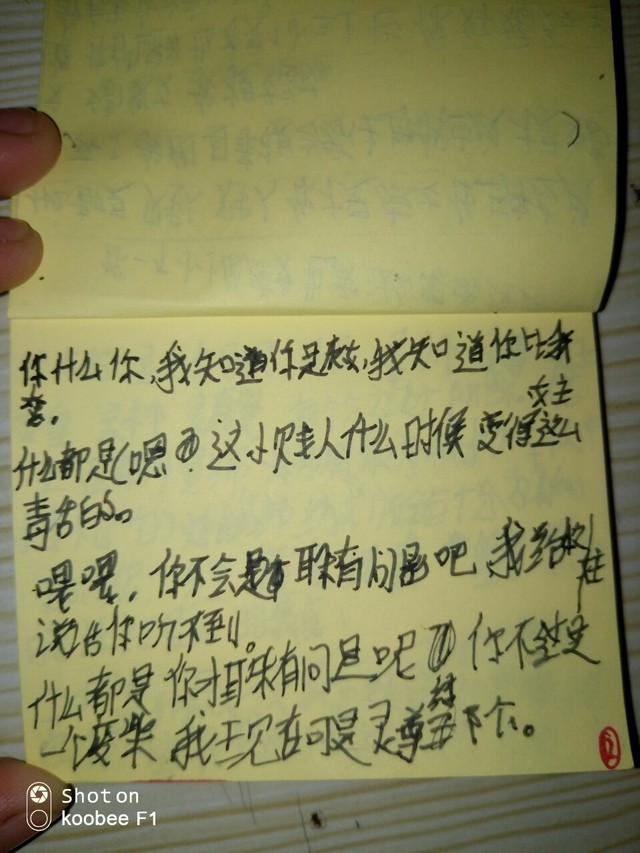 你什么你,我知道你是废,我知道你比我
女主
什么都是(嗯 这小贱人什么时候变得这么
毒舌的。
喂喂,你不会是耳朵有问题吧 我
说话你听不到。
什么都是 你才耳朵有问题呢 你不
一个废柴 我现在可是灵尊 下个。
2
Shot on
koobee F1